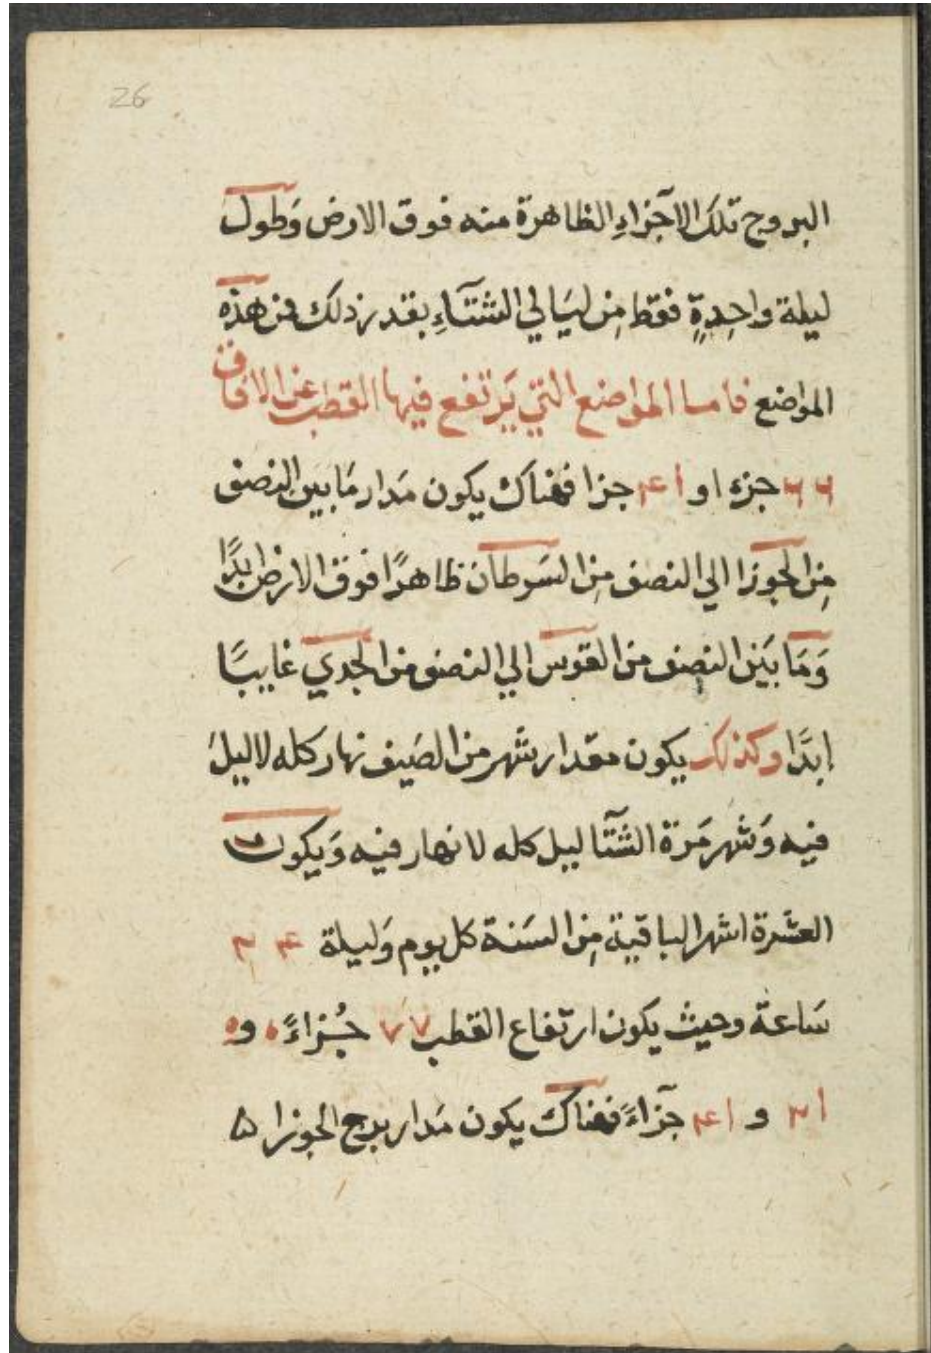 26
البروج تلك الآجزاءِ الظاهرة منه فوق الارض وَطول
ليلة واحِدةٍ فقط مِن ليَالي الشتآءِ بقدر ذلك من هذه
المواضع فاما المواضع التي يَرتفع فيها القطب عن الافاق
٦٦ جزء او ١٤ جزا فهناك يكون مَدار مَا بين النصف
مِن الجوزا الي النصف مِن السَرطان ظاهرًا فوق الارض ابدًا
وَمَا بَين النصف من القوس الي النصف من الجدي غايبًا
ابدًا وكذلك يكون مقدار شهر من الصَيف نهار كله لا ليل
فيه وَشهر مَرة الشتآ ليل كله لا نهار فيه وَيكون
العشرة اشهر الباقية مِن السَنة كل يوم وَليلة ٢٤
سَاعة وحيث يكون ارتفاع القطب ٧٧ جُزاءً ٥ و٥
٢١ و ١٤ جزآءً فهناك يكون مَدار برج الجوزا ۵